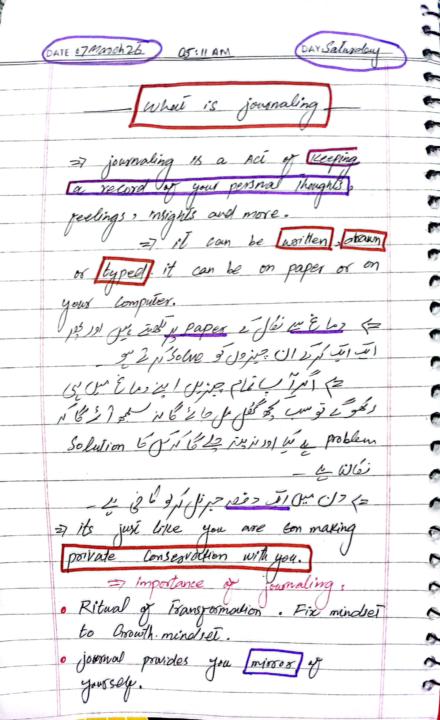 DATE 07 March 26 05:11 AM DAY Saturday
What is journaling
⇒ journaling is a Act of keeping
a record of your personal thoughts,
feelings, insights and more.
⇒ it can be written, drawn
or typed. it can be on paper or on
your computer.
⇐ دماغ سے نکال کے paper پر لکھتے ہیں اور پھر
ایک ایک کرکے ان چیزوں کو solve کرتے ہو
⇐ اگر آپ تمام چیزیں اپنے دماغ میں ہی
رکھو گے تو سب کچھ گھل مل جائے گا نہ سمجھ آئے گا کہ
problem ہے کیا اور نہ پتہ چلے گا کہ اس کا Solution
نکالنا ہے ـ
⇐ دن میں ایک دفعہ جرنل کرو کافی ہے ـ
⇒ its just like you are making
private conservation with you.
⇒ importance of journaling:
• Ritual of transformation. Fix mindset
to Growth mindset.
• journal provides you mirror of
yourself.